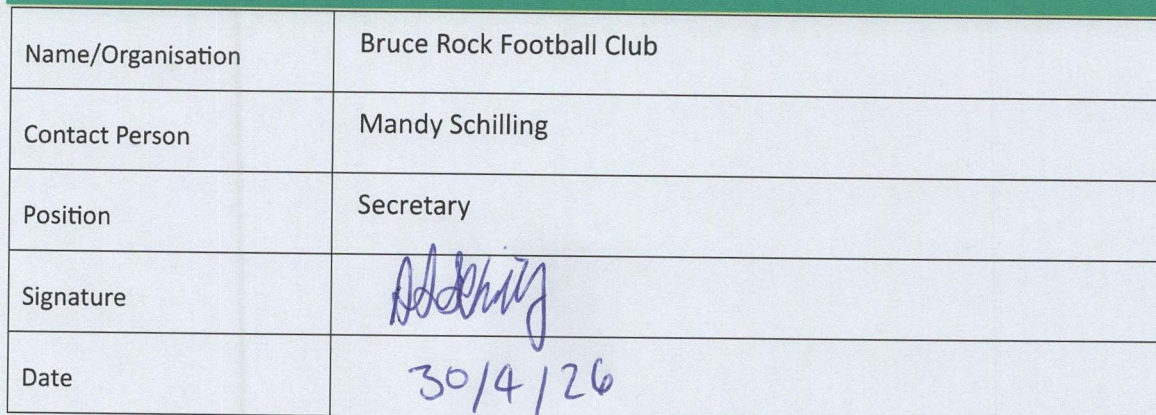 Name/Organisation
Bruce Rock Football Club
Contact Person
Mandy Schilling
Position
Secretary
Signature
Date
30/4/26